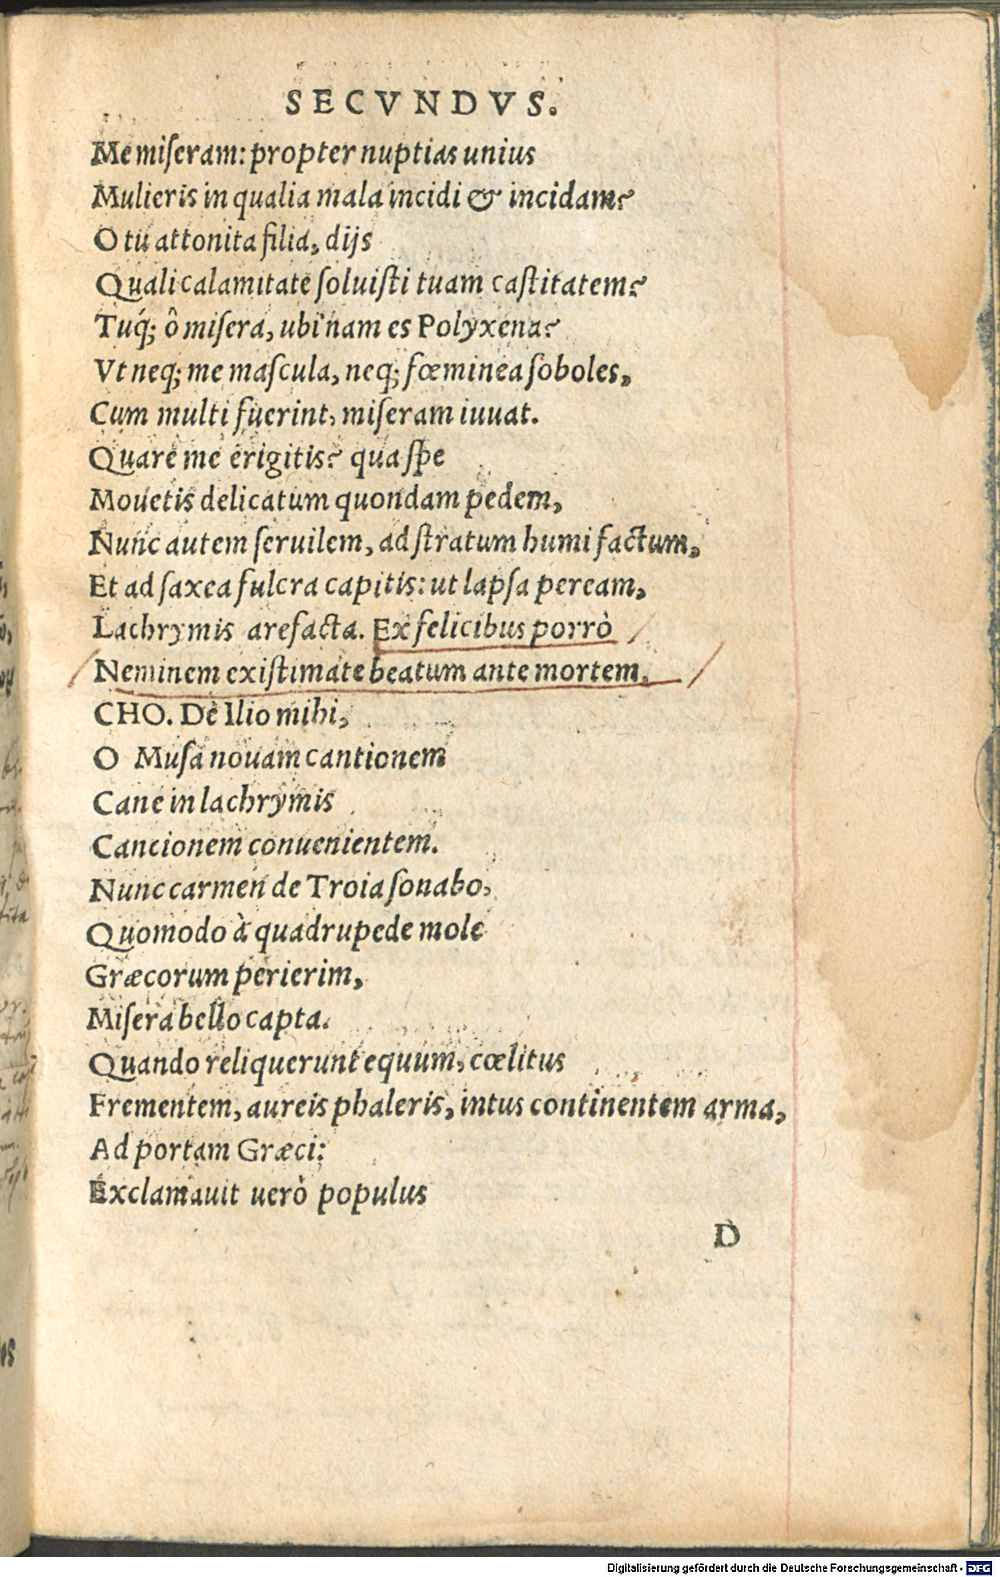 SECVNDVS.
Me miſeram: propter nuptias unius
Mulieris in qualia mala incidi & incidam?
O tu attonita filia, dijs
Quali calamitate ſoluiſti tuam caſtitatem?
Tuq́; ô miſera, ubi nam es Polyxena?
Vt neq; me maſcula, neq; fœminea ſoboles,
Cum multi fuerint, miſeram iuuat.
Quare me erigitis? qua ſpe
Mouetis delicatum quondam pedem,
Nunc autem ſeruilem, ad ſtratum humi factum,
Et ad ſaxea fulcra capitis: ut lapſa peream,
Lachrymis arefacta. Ex felicibus porrò
Neminem exiſtimate beatum ante mortem.
CHO. De Ilio mihi,
O Muſa nouam cantionem
Cane in lachrymis
Cancionem conuenientem.
Nunc carmen de Troia ſonabo,
Quomodo à quadrupede mole
Græcorum perierim,
Miſera bello capta.
Quando reliquerunt equum, cœlitus
Frementem, aureis phaleris, intus continentem arma,
Ad portam Græci:
Exclamauit uerò populus
D
Digitalisierung gefördert durch die Deutsche Forschungsgemeinschaft - DFG